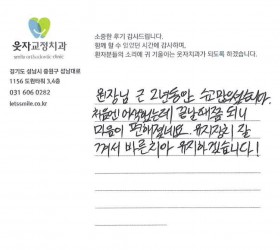 웃자교정치과
smile orthodontic clinic
경기도 성남시 중원구 성남대로
1156 도원타워 3,4층
031 606 0282
letssmile.co.kr
소중한 후기 감사드립니다.
함께 할 수 있었던 시간에 감사하며,
환자분들의 소리에 귀 기울이는 웃자치과가 되도록 하겠습니다.
원장님 근 2년동안 수고많으셨습니다.
처음엔 어색했는데 끝날때쯤 되니
마음이 편해졌네요. 유지장치 잘
껴서 바른치아 유지하겠습니다!